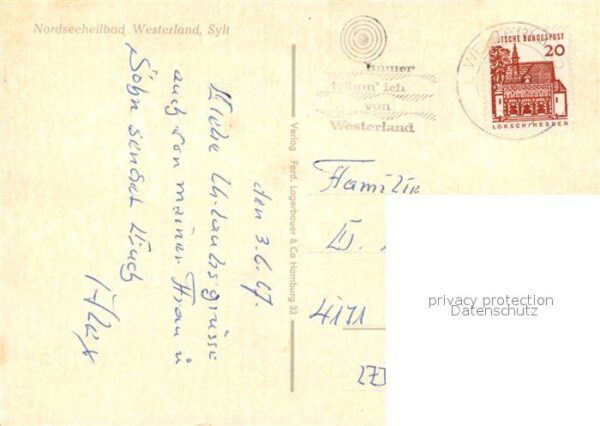 Nordseeheilbad Westerland, Sylt
den 3.6.67.
Liebe Urlaubsgrüsse
auch von meiner Frau u
Sohn sendet Euch
Verlag Ferd. Lagerbauer & Co Hamburg 33
Immer
träum' ich
von
Westerland
DEUTSCHE BUNDESPOST
20
LORSCH/HESSEN
Familie
4171
privacy protection
Datenschutz